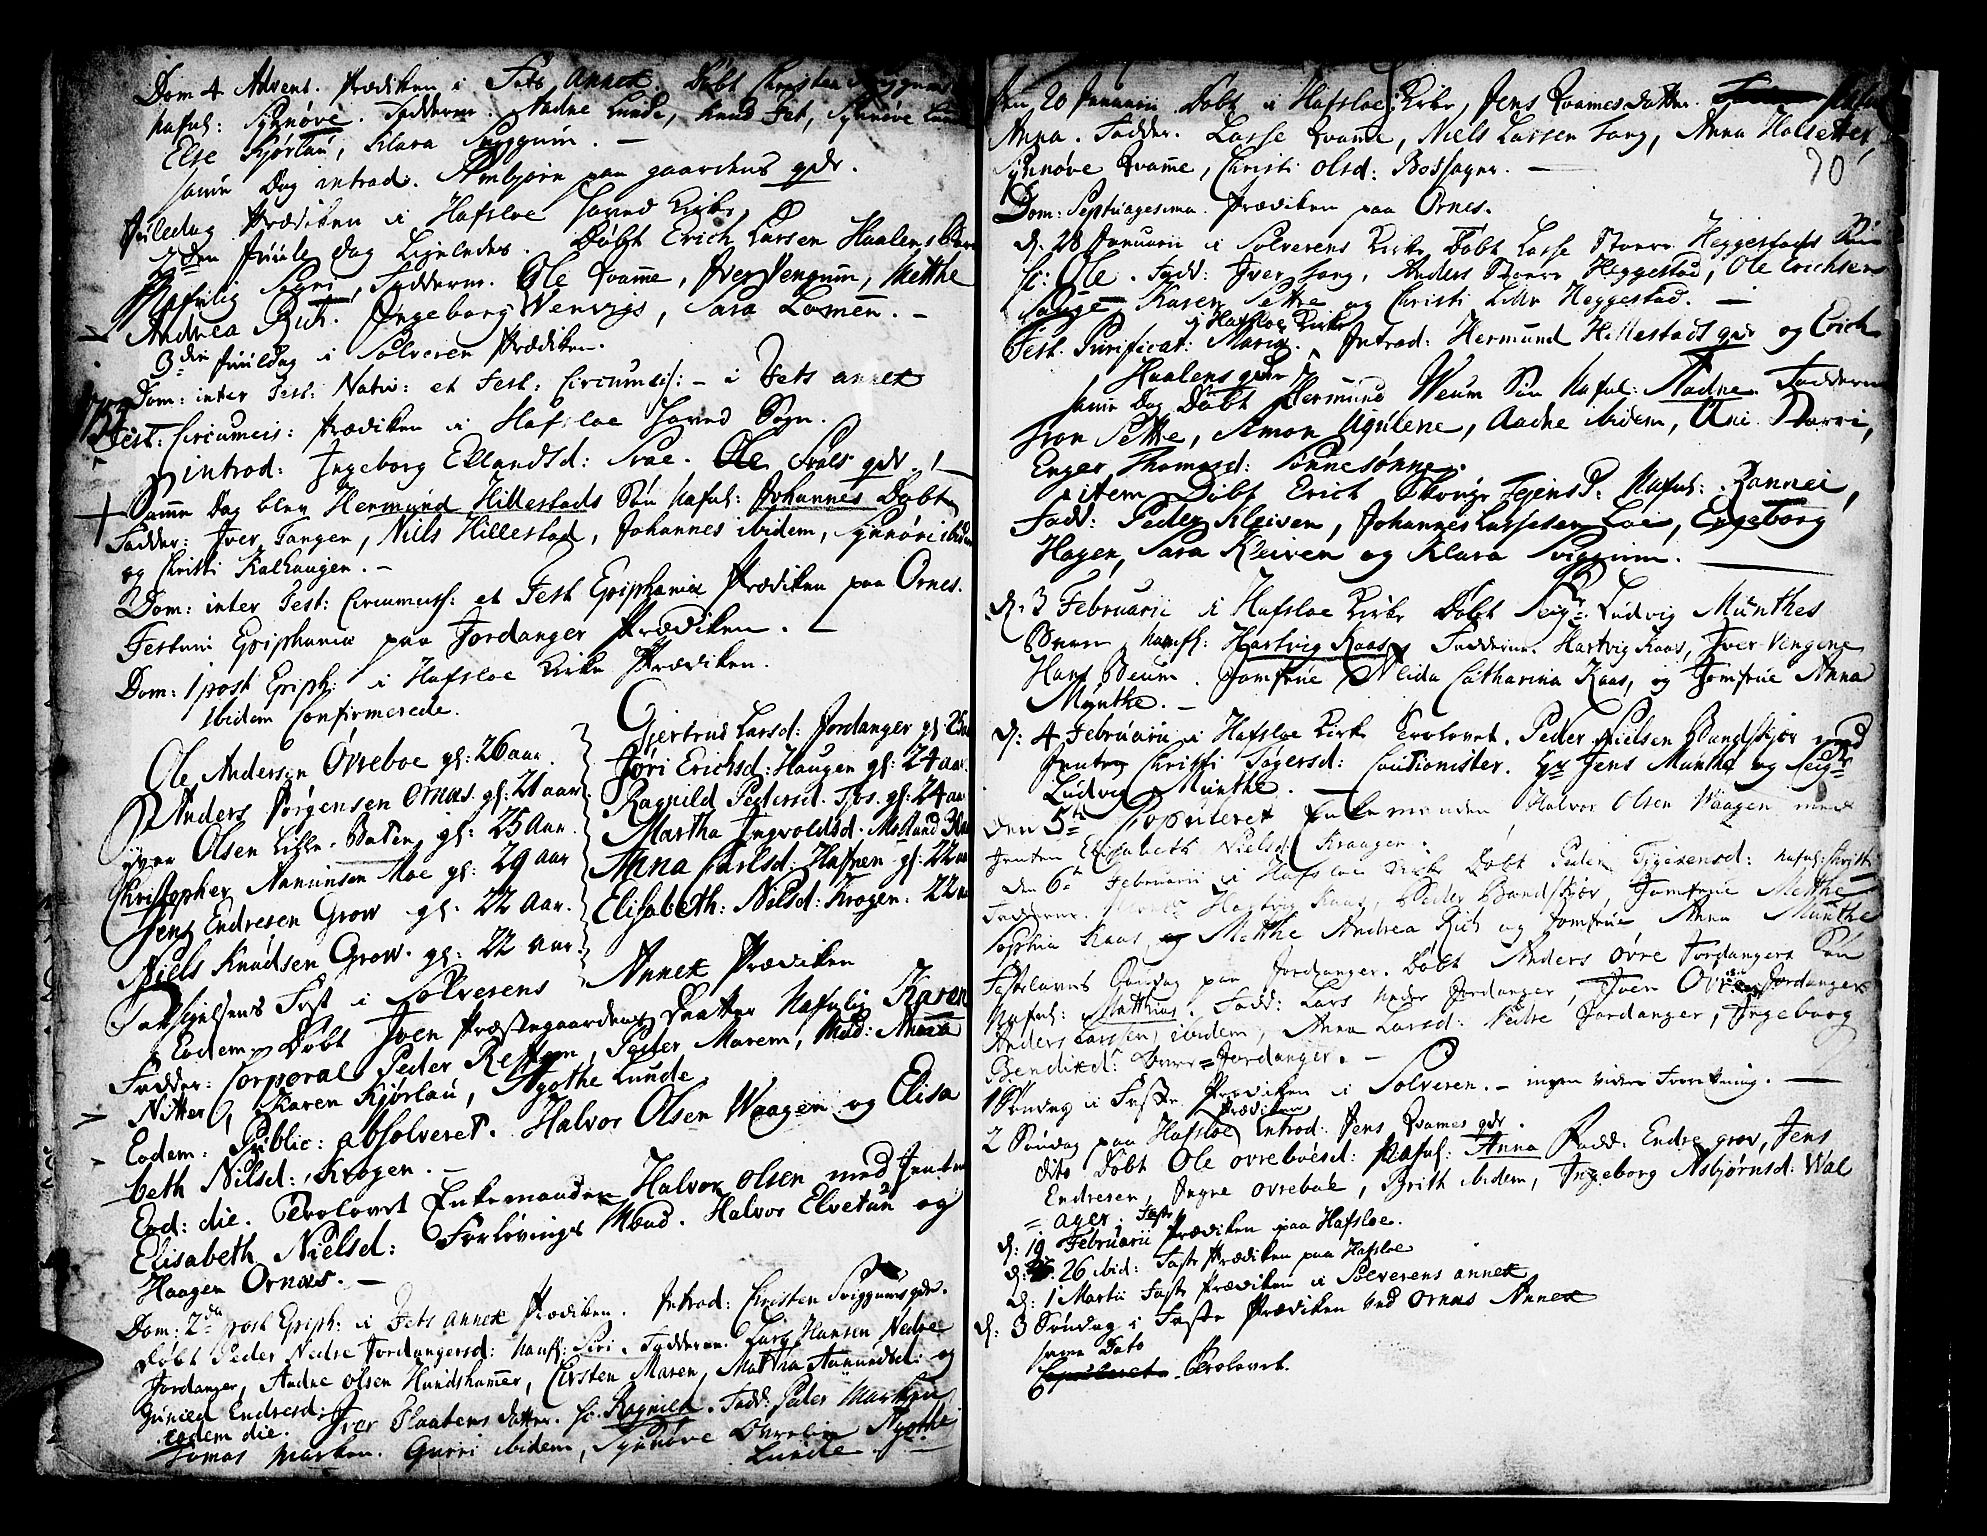 Dom 4 Advent. Prædiken i Fets Annex. Døbt Christen
Nafnl: Synnøve. Fadderne. Aadne Lunde, Knud Fet, Synnøve Lunde
Else Kjørlau, Klara Svggum. —
samme Dag introd. Arnbjørn paa gaardens qdr.
Juledag Prædiken i Hafsloe Hoved Kirke,
2den Juule Dag Ligeledes. Døbt Erich Larsen Haalens Barn
Nafnlig Sygni, Fadderne. Ole Kvame, Iver Venjum, Metthe
Andrea Rich. Ingeborg Wenvigs, Sara Lomen. —
3die Juuldag i Solveren Prædiken.
Dom: inter Fest: Nativ: et Fest: Circumcis: — i Fets annex
1754
Fest: Circumcis: Prædiken i Hafsloe Hoved Sogn.
introd: Ingeborg Ellandsd: Svae. Ole Svals qdr.
Samme Dag blev Hermund Hillestads Søn Nafnl: Johannes Døbt
Fadder: Iver Tangen, Nills Hillestad, Johannes ibidem, Synnøve ibidem
og Christi Kalhaugen. —
Dom: inter Fest: Circumcis: et Fest Epiphania Prædiken paa Ornes.
Festum Epiphania paa Jordanger Prædiken. —
Dom: 1 post Epiph: i Hafsloe Kirke Prædiken.
Ibidem Confirmerede.
Ole Andersen Øvreboe gl: 26 aar.
Anders Jørgensen Ornas. gl: 21 aar
Iver Olsen Lille-Baten gl: 25 Aar.
Christopher Aamundsen Moe gl: 29 aar
Jens Endresen Grow gl: 22 Aar.
Niels Knudsen Grow. gl: 22 Aar.
Giertrud Larsd: Jordanger gl: 25
Jøri Erichsd: Haugen gl: 24 aar.
Ragnild Pedersd. Fjos. gl: 24 aar
Martha Ingvoldsd. Molland
Anna Carlsd: Hafneen gl: 22 aar
Elisabeth: Nilsd: Krogen. 22
Taksigelsens Fest i Solverens Annex Prædiken
Eodem Døbt Iven Præstegaardens Daatter Nafnlig Karen
Fadder: Corporal Peder Restum, Peder Marem, Mad: Anna
Nitter, Karen Kjørlau, Agothe Lunde
Eodem: Public: absolveret. Halvor Olsen Waagen og Elisa
beth Nilsd: Krogen. —
Eod: die. Trolovet Enkemanden Halvor Olsen med Jenten
Elisabeth Nielsd: Forlovings Mænd. Halvor Elvetun og
Haagen Ornæs. —
Dom: 2da post Epiph: i Fets annex Prædiken. Introd: Christen Sviggums qdr.
døbt Peder Nedre Jordangersd: Nafnl: Siri. Fadderne. Lars Hansen Nedre
Jordanger, Andne Olsen Hundshamer, Kirsten Maren, Martha Aamundsd: og
Gunild Endresd:
eodem die. Iver Plaatens datter. Ragnild. Fadd: Peder Marken
Tomas Marken. Gurri ibidem, Synnøve Agothe
Lunde
Den 20 Januarii Døbt i Hafsloe Kirke, Jens Kvames Datter.
Anna. Fadder. Lasse Kvame, Niels Larsen Tang, Anna Halsetter,
Synnøve Kvame, Christi Olsd: Bolsagne. —
70
Dom: Septuagesima. Prædiken paa Ornes.
d. 28 Januarii i Solverens Kirke Døbt Lasse Stoere Heggestads Søn
Ole. Fadd: Iver Tang, Anders Stoere Heggestad, Ole Erichsen
Karen Settre og Christi Lille Heggestad. —
i Hafsloe Kirke
Fest. Purificat: Mariæ. Introd: Hermund Hillestads qdr og Erich
Haalens qdr —
samme Dag Døbt Hermund Weum Søn Nafnl: Aadne. Fadderne
Iron Settre, Simon Ugulene, Aadne ibidem, Ane Dorri,
Enger Thomasd: Sønnesønne.
item Døbt Erich Skrige Feiensd: Nafnl: Rannei,
Fadd: Peder Kleiven, Johannes Lassesen Loi, Engeborg
Hagen, Sara Kleiven og Klara Sviggum.
d: 3 Februarii i Hafsloe Kirke Døbt Seigr: Ludvig Munthes
Barn Nanfl: Hartvig Kaas, Fadderne. Hartvig Kaas, Iver Vengene
Hans Beum. Jomfrue Alida Catharina Kaas, og Jomfrue Anna
Munthe. —
d: 4 Februarii i Hafsloe Kirke Trolovet. Peder Nielsen Bandskjær med
Jenten Christi Tøgersd: Cautionister. Hr Jens Munthe og Seigr
Ludvig Munthe. —
den 5te Copuleret Enkemanden Halvor Olsen Waagen med
Jenten Elisabeth Nielsd: Kraagen.
den 6te Februarii i Hafsloe Kirke Døbt Peder Nafnl: Christi
Fadderne. Hartvig Kaas, Peder Bandskjær, Jomfrue Metthe
Sophia Kaas, og Metthe Andrea Rich og Jomfrue Anna Munthe
Fastelavns Søndag paa Jordanger. Døbt Anders øvre Jordangers Søn
Nafnl: Matthias. Fadd: Lars Nedre Jordanger, Iven Øvre Jordanger
Anders Larsen, ibidem, Anna Larsd: Nedre Jordanger, Ingeborg
Bendixd: øvre=Jordanger. —
1 Søndag i Faste Prædiken i Solveren. — ingen videre Forretning. —
Prædiken
2 Søndag paa Hafsloe, Introd: Jens Kvames qdr.
dito Døbt Ole ovreboesd: Nafnl: Anna Fadd: Endre grov, Jens
Endresen, Ingre ovreboe, Brith ibidem, Ingeborg Asbjørnsd: Wal
= ager. Faste
d: 19 Februarii Prædiken paa Hafsloe.
d: 26 ibid: Faste Prædiken paa Hafsloe
d: 1 Martii Faste Prædiken i Solverens annex
d: 3 Søndag i Faste Prædiken ved Ornæs Annex
samme Dato
Copuleret Trolovet.